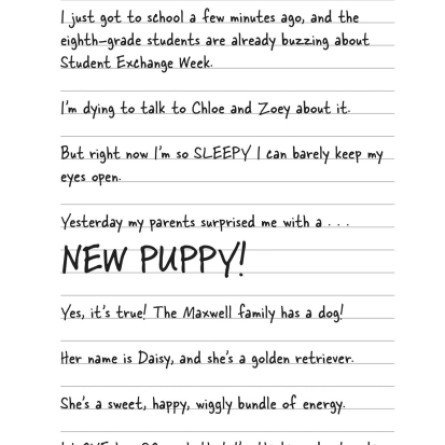 I just got to school a few minutes ago, and the
eighth-grade students are already buzzing about
Student Exchange Week.
I'm dying to talk to Chloe and Zoey about it.
But right now I'm so SLEEPY I can barely keep my
eyes open.
Yesterday my parents surprised me with a . . .
NEW PUPPY!
Yes, it's true! The Maxwell family has a dog!
Her name is Daisy, and she's a golden retriever.
She's a sweet, happy, wiggly bundle of energy.